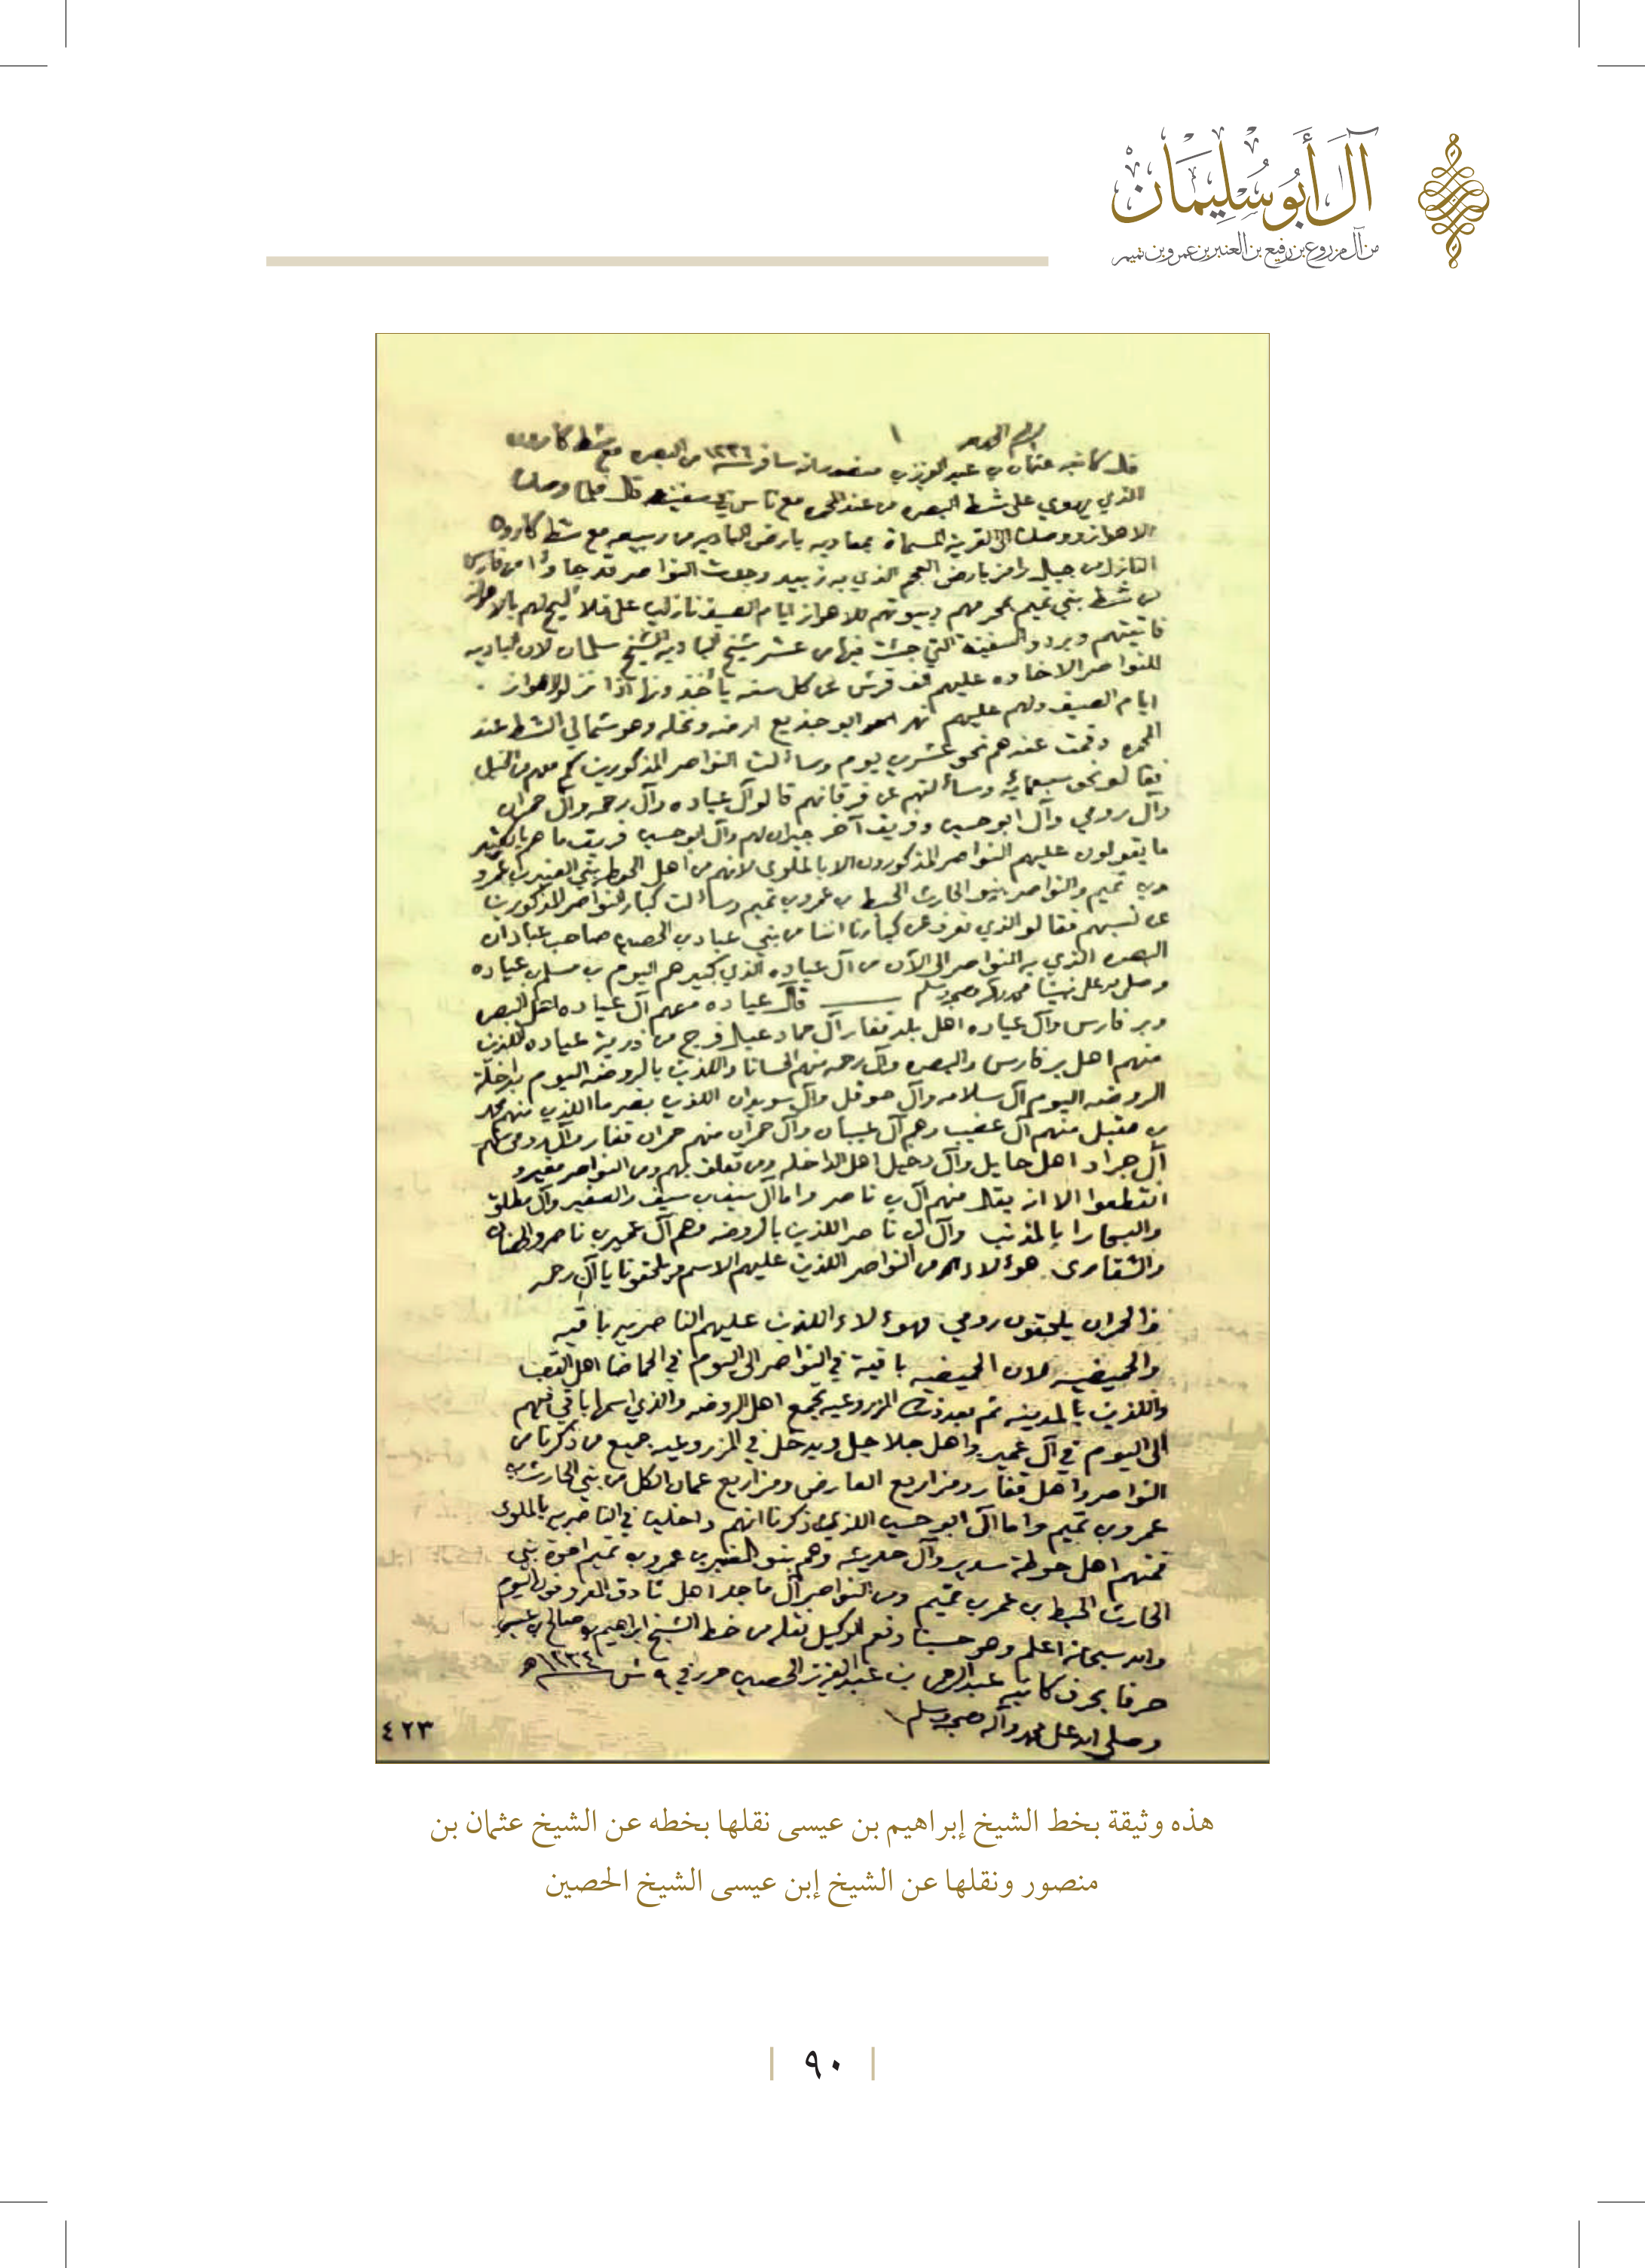 آل أبو سليمان
من آل مزروع بن رفيع بن العنبر بن عمرو بن تميم
قال كاتبه عثمان بن عبد العزيز بن منصور انه سافر سنة ١٢٣٦ من البصره مع شط كارون
الذي يهوي على شط البصره من عند المحمره مع ناس في سفينة قال فلما وصلنا
الاهواز ووصلنا الى القرية المسماة بمعاديه بارض الباديه من ربيعه مع شط كارون
النازل من جبل رامز بارض العجم الذي به زبيد وجدت النواصر قد جاوا من فارس
من شط بني تميم بحرمهم وبيوتهم للاهواز ايام الصيف نازلين على فلاليح لهم بالاهواز
فاتيتهم وبردوا السفينة التي جئت فيها من عشر شيخ الباديه الشيخ سلمان لان الباديه
للنواصر الاخاوه عليهم الف قرش عن كل سنه يأخذونها اذا نزلوا الاهواز
ايام الصيف ولهم عليهم نهر ابو جذيع ارضه ونخله وهو شمالي الشط عند
المحمره وقمت عندهم نحو عشرين يوم وسألت النواصر المذكورين كم معهم من الخيل
فقالو نحو سبعمائة وسألتهم عن فرقانهم قالو آل عياده وآل رحمه وآل حمران
وآل رومي وآل ابو حسين وفريق آخر جيران لهم وآل ابو حسين فريق ما هم بالكثير
ما يقولون عليهم النواصر المذكورون الا بالملوى لانهم من اهل الحوطه بني العنبر بن عمرو
بن تميم والنواصر بنو الحارث الحبط بن عمرو بن تميم وسألت كبار النواصر المذكورين
عن نسبهم فقالو الذي نعرف عن كبارنا اننا من بني عباد بن الحصين صاحب عبادان
البصره الذي به النواصر الى الآن من آل عياده الذي كبيرهم اليوم بن مسلم بن عياده
وصلى الله على نبينا محمد وآله وصحبه وسلم قال عياده معهم آل عياده اهل البصره
وبر فارس وآل عياده اهل بلد قفار آل حماد عيال فرج من ذرية عياده اللذين
منهم اهل بر فارس والبصره وآل رحمه منهم الحسانا واللذين بالروضه اليوم بداخلة
الروضه اليوم آل سلامه وآل حوقل وآل سويدان اللذين بضرما اللذين منهم محمد
بن مقبل منهم آل عضيب وهم آل غيبان وآل حمران منهم حمران قفار وآل رومي منهم
آل جراد اهل حايل وآل دخيل اهل الداخله ومن تعلق بهم ومن النواصر مغيرو
انقطعوا الا انه يقال منهم آل بن ناصر واما آل سيف بن سيف والصغير وآل مطلق
والبحارا بالمذنب وآل بن ناصر اللذين بالروضه وهم آل عمير بن ناصر
والشقارى هؤلاء هم من النواصر اللذين عليهم الاسم ويلحقونا يا آل رحمه
والحمران يلحقون رومي فهؤلاء اللذين عليهم الناصريه باقيه
والحميضيه لان الحميضيه باقية في النواصر الى اليوم في الحماضا اهل القصب
واللذين بالمدينه ثم بعد ذلك المزروعيه تجمع اهل الروضه والذي اسمها باقي فيهم
الى اليوم في آل عمير واهل جلاجل ويدخل في المزروعيه جميع من ذكرنا من
النواصر واهل قفار ومزاريع العارض ومزاريع عمان الكل من بني الحارث بن
عمرو بن تميم واما آل ابو حسين اللذي ذكرنا انهم داخلين في الناصريه بالملوى
فمنهم اهل حوطة سدير وآل حديثه وهم بنو العنبر بن عمرو بن تميم اخوة بني
الحارث الحبط بن عمر بن تميم ومن النواصر آل ماجد اهل ثادق المعروفون اليوم
والله سبحانه اعلم وهو حسبنا ونعم الوكيل نقله من خط الشيخ ابراهيم بن صالح بن عيسى
حرفا بحرف كاتبه عبد الرحمن بن عبد العزيز الحصين حرر في ٩ ش
وصلى الله على محمد وآله وصحبه وسلم
٤٢٣
هذه وثيقة بخط الشيخ إبراهيم بن عيسى نقلها بخطه عن الشيخ عثمان بن
منصور ونقلها عن الشيخ إبن عيسى الشيخ الحصين
٩٠